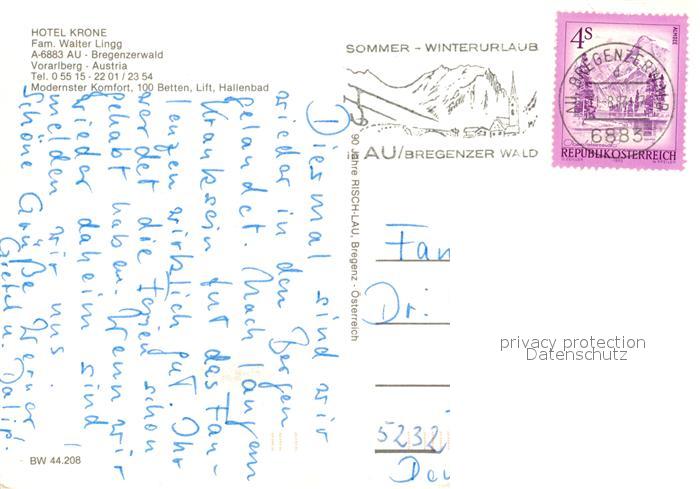 HOTEL KRONE
Fam. Walter Lingg
A-6883 AU - Bregenzerwald
Vorarlberg - Austria
Tel. 0 55 15 - 22 01 / 23 54
Modernster Komfort, 100 Betten, Lift, Hallenbad
SOMMER - WINTERURLAUB
in AU/BREGENZER WALD
4S
ALMSEE
AU, BREGENZERWALD
6883
REPUBLIK ÖSTERREICH
Diesmal sind wir
wieder in den Bergen
gelandet. Nach langem
Kranksein tut das Fau-
lenzen wirklich gut. Ihr
werdet die Ferien schon
gehabt haben. Wenn wir
wieder daheim sind
melden wir uns.
Schöne Grüße Werner
Gretel u.
90 Jahre RISCH-LAU, Bregenz - Österreich
Fam
Dr.
5232
BW 44.208
privacy protection
Datenschutz